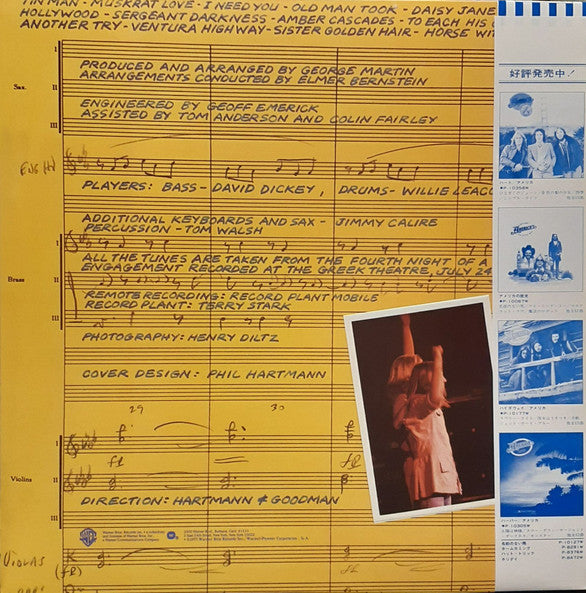 TIN MAN - MUSKRAT LOVE - I NEED YOU - OLD MAN TOOK - DAISY JANE
HOLLYWOOD - SERGEANT DARKNESS - AMBER CASCADES - TO EACH HIS
ANOTHER TRY - VENTURA HIGHWAY - SISTER GOLDEN HAIR - HORSE WIT
I
Sax. II
III
PRODUCED AND ARRANGED BY GEORGE MARTIN
ARRANGEMENTS CONDUCTED BY ELMER BERNSTEIN
ENGINEERED BY GEOFF EMERICK
ASSISTED BY TOM ANDERSON AND COLIN FAIRLEY
ENG HN
PLAYERS: BASS - DAVID DICKEY, DRUMS - WILLIE LEACO
ADDITIONAL KEYBOARDS AND SAX - JIMMY CALIRE
PERCUSSION - TOM WALSH
I
Brass II
III
ALL THE TUNES ARE TAKEN FROM THE FOURTH NIGHT OF A
ENGAGEMENT RECORDED AT THE GREEK THEATRE, JULY 24
REMOTE RECORDING: RECORD PLANT MOBILE
RECORD PLANT: TERRY STARK
PHOTOGRAPHY: HENRY DILTZ
COVER DESIGN: PHIL HARTMANN
29 30
I
Violins II
III
DIRECTION: HARTMANN & GOODMAN
VIOLAS
好評発売中!
ハート/アメリカ
アメリカの歴史
ハイダウェイ/アメリカ
ハーバー/アメリカ
名前のない馬
ホームカミング
ハット・トリック
ホリデイ